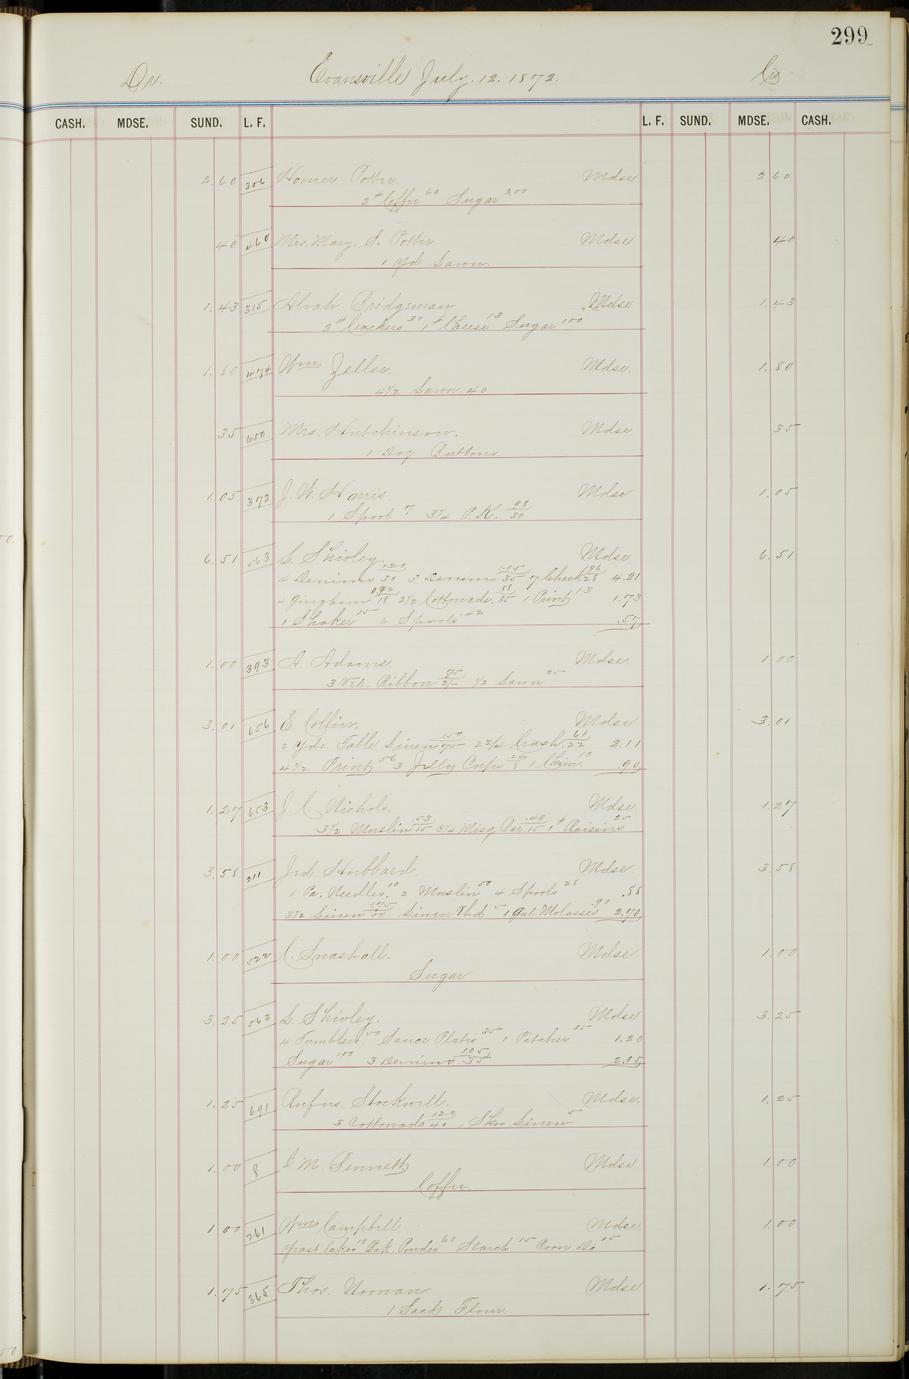 299
Dr. Evansville July. 12. 1872. Cr
CASH. MDSE. SUND. L. F. L. F. SUND. MDSE. CASH.
2.60 356 Homer Potter Mdse 2 60
2# Coffee 60 Sugar 200
40 460 Mrs. Mary S. Potter Mdse 40
1 Yd Lawn.
1.43 315 Alvah Bridgman Mdse 1.43
2# Crackers 30 1# Cheese 13 Sugar 100
1.80 474 Wm Zeller. Mdse. 1.80
4 1/2 Lawn 40
35 600 Mrs. Hutchinson. Mdse 35
1 Doz Buttons
1.05 372 J. W. Harris. Mdse 1.05
1 Spool 7 3 1/4 P.K. 98/30
6.51 563 L. Shivley. Mdse 6.51
4 Denims 120/30 3 Denim 105/35 7 Check 196/28 4.21
4 Gingham 18 2 1/2 Cottonade 88/35 1 Print 13 1.73
1 Shaker 15 6 Spools 42 .57
1.00 393 A. Adams Mdse 1.00
3 Ribbon 75/25 1/2 Lawn 25
3.01 656 E. Coffin. Mdse 3.01
2 yds Table Linen 150/75 2 3/4 Crash 61/22 2.11
4 1/2 Print 56 3 Jelly Cups 24/8 1 10 .90
1.27 653 J. C Nichols. Mdse 1.27
3 1/2 Muslin 53/15 3 1/4 Misq Bar 49/15 1# Raisins 25
3.58 211 Jed. Hubbard. Mdse. 3.58
1 Pa. Needles 10 2 Muslin 50 4 Spools 28 .88
3 1/2 Linen 175/50 Linen Thd 5 1 Gal. Molasses 90 2.70
1.00 522 C. Snashall. Mdse 1.00
Sugar
3.25 563 L. Shivley. Mdse 3.25
4 Tumblers 50 Sauce Plates 35 1 Pitcher 35 1.20
Sugar 100 3 Denims 105/35 2.05
1.25 691 Rufus. Stockwell. Mdse. 1.25
3 Cottonade 120/40 1 Skn Linen 5
1.00 8 M. Bennett Mdse 1.00
Coffee.
1 00 261 Wm Campbell Mdse 1.00
Yeast Cakes 10 Bak. Powder 60 Starch 15 Corn Do 15
1.75 365 Thos. Noonan Mdse 1.75
1 Sack Flour.